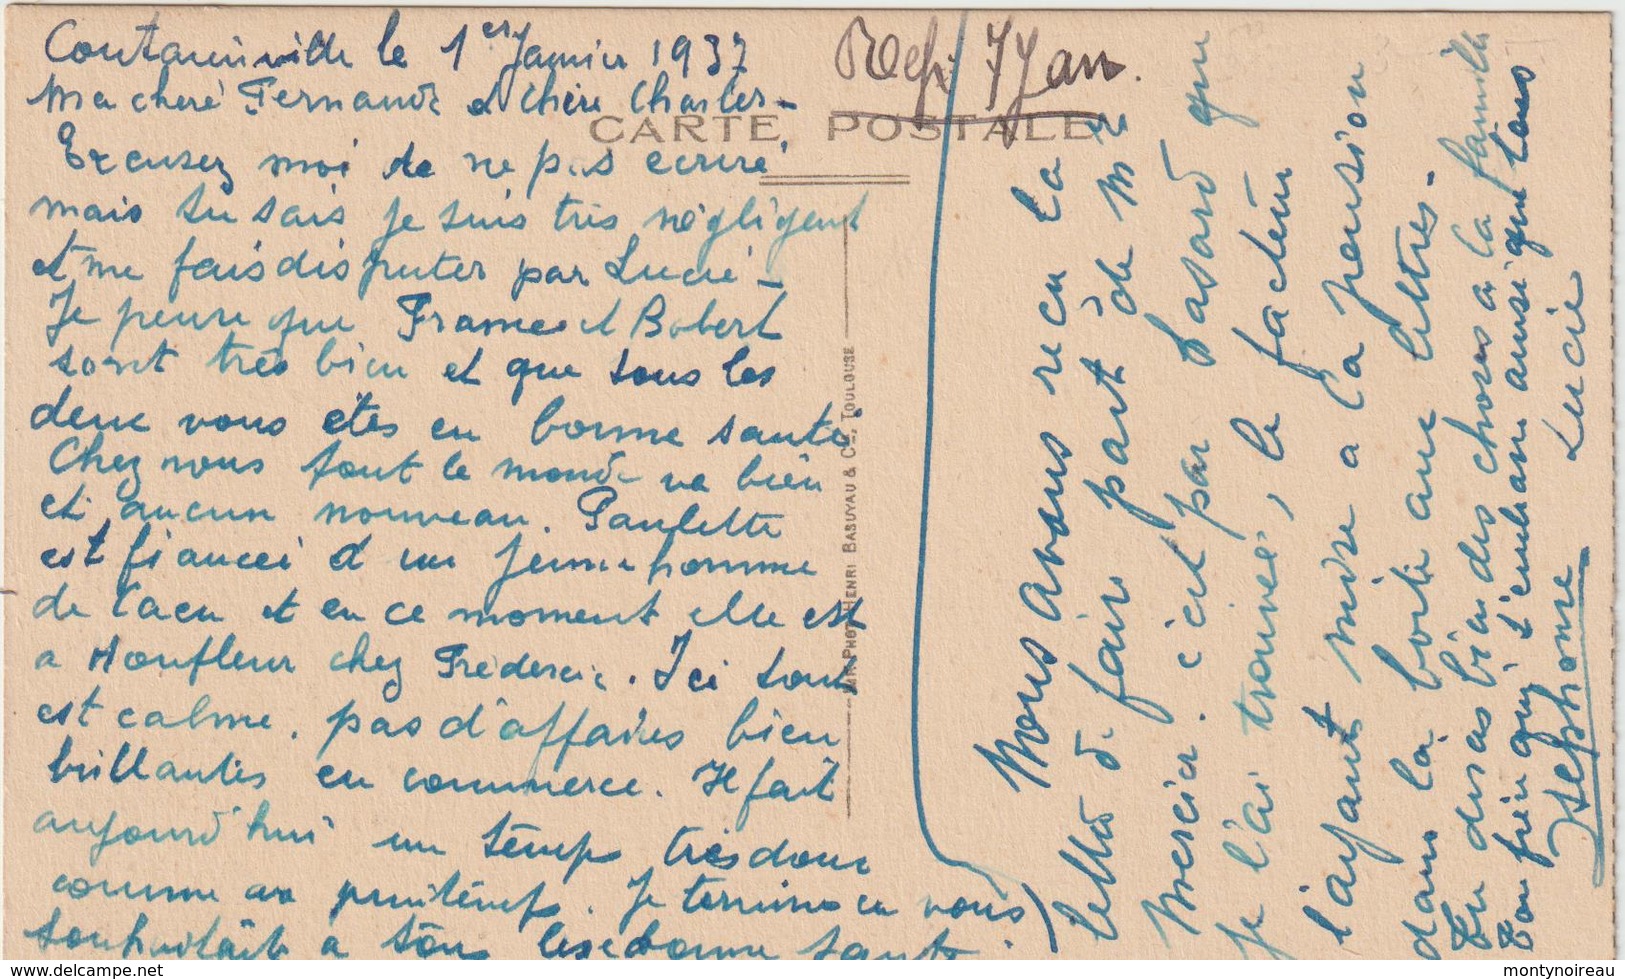 Coutainville le 1er Janvier 1937
Ma cheré Fernande et Chère Charles -
Rep. 7 Jan.
CARTE POSTALE
Excusez moi de ne pas ecriré
mais tu sais je suis très négligent
et me fais disputer par Lucie -
Je pense que Franes et Robert
sont très bien et que tous les
deux vous êtes en bonne santé
Chez nous tout le monde va bien
et aucun nouveau. Paulette
est fiancei à un jeune homme
de Caen et en ce moment elle est
a Honfleur chez Fréderic. Ici tout
est calme. pas d'affaires bien
brillantes en commerce. Il fait
aujourd'hui un temps très doux
comme au printemps. Je termine en vous
souhaitant a tous les bonne santé
Nous avons reçu la
lettre de faire part de Mr
Mercier. c'est par hasard que
je l'ai trouvée, le facteur
l'ayant mise a la pension
dans la boite aux lettres.
Tu diras bien des choses a la famille
Ton frère qui t'embrasse ainsi que tous
Josephome Lucie
MP. PHOT. HENRI BASUYAU & Cie, TOULOUSE
https://www.delcampe.net
montynoireau